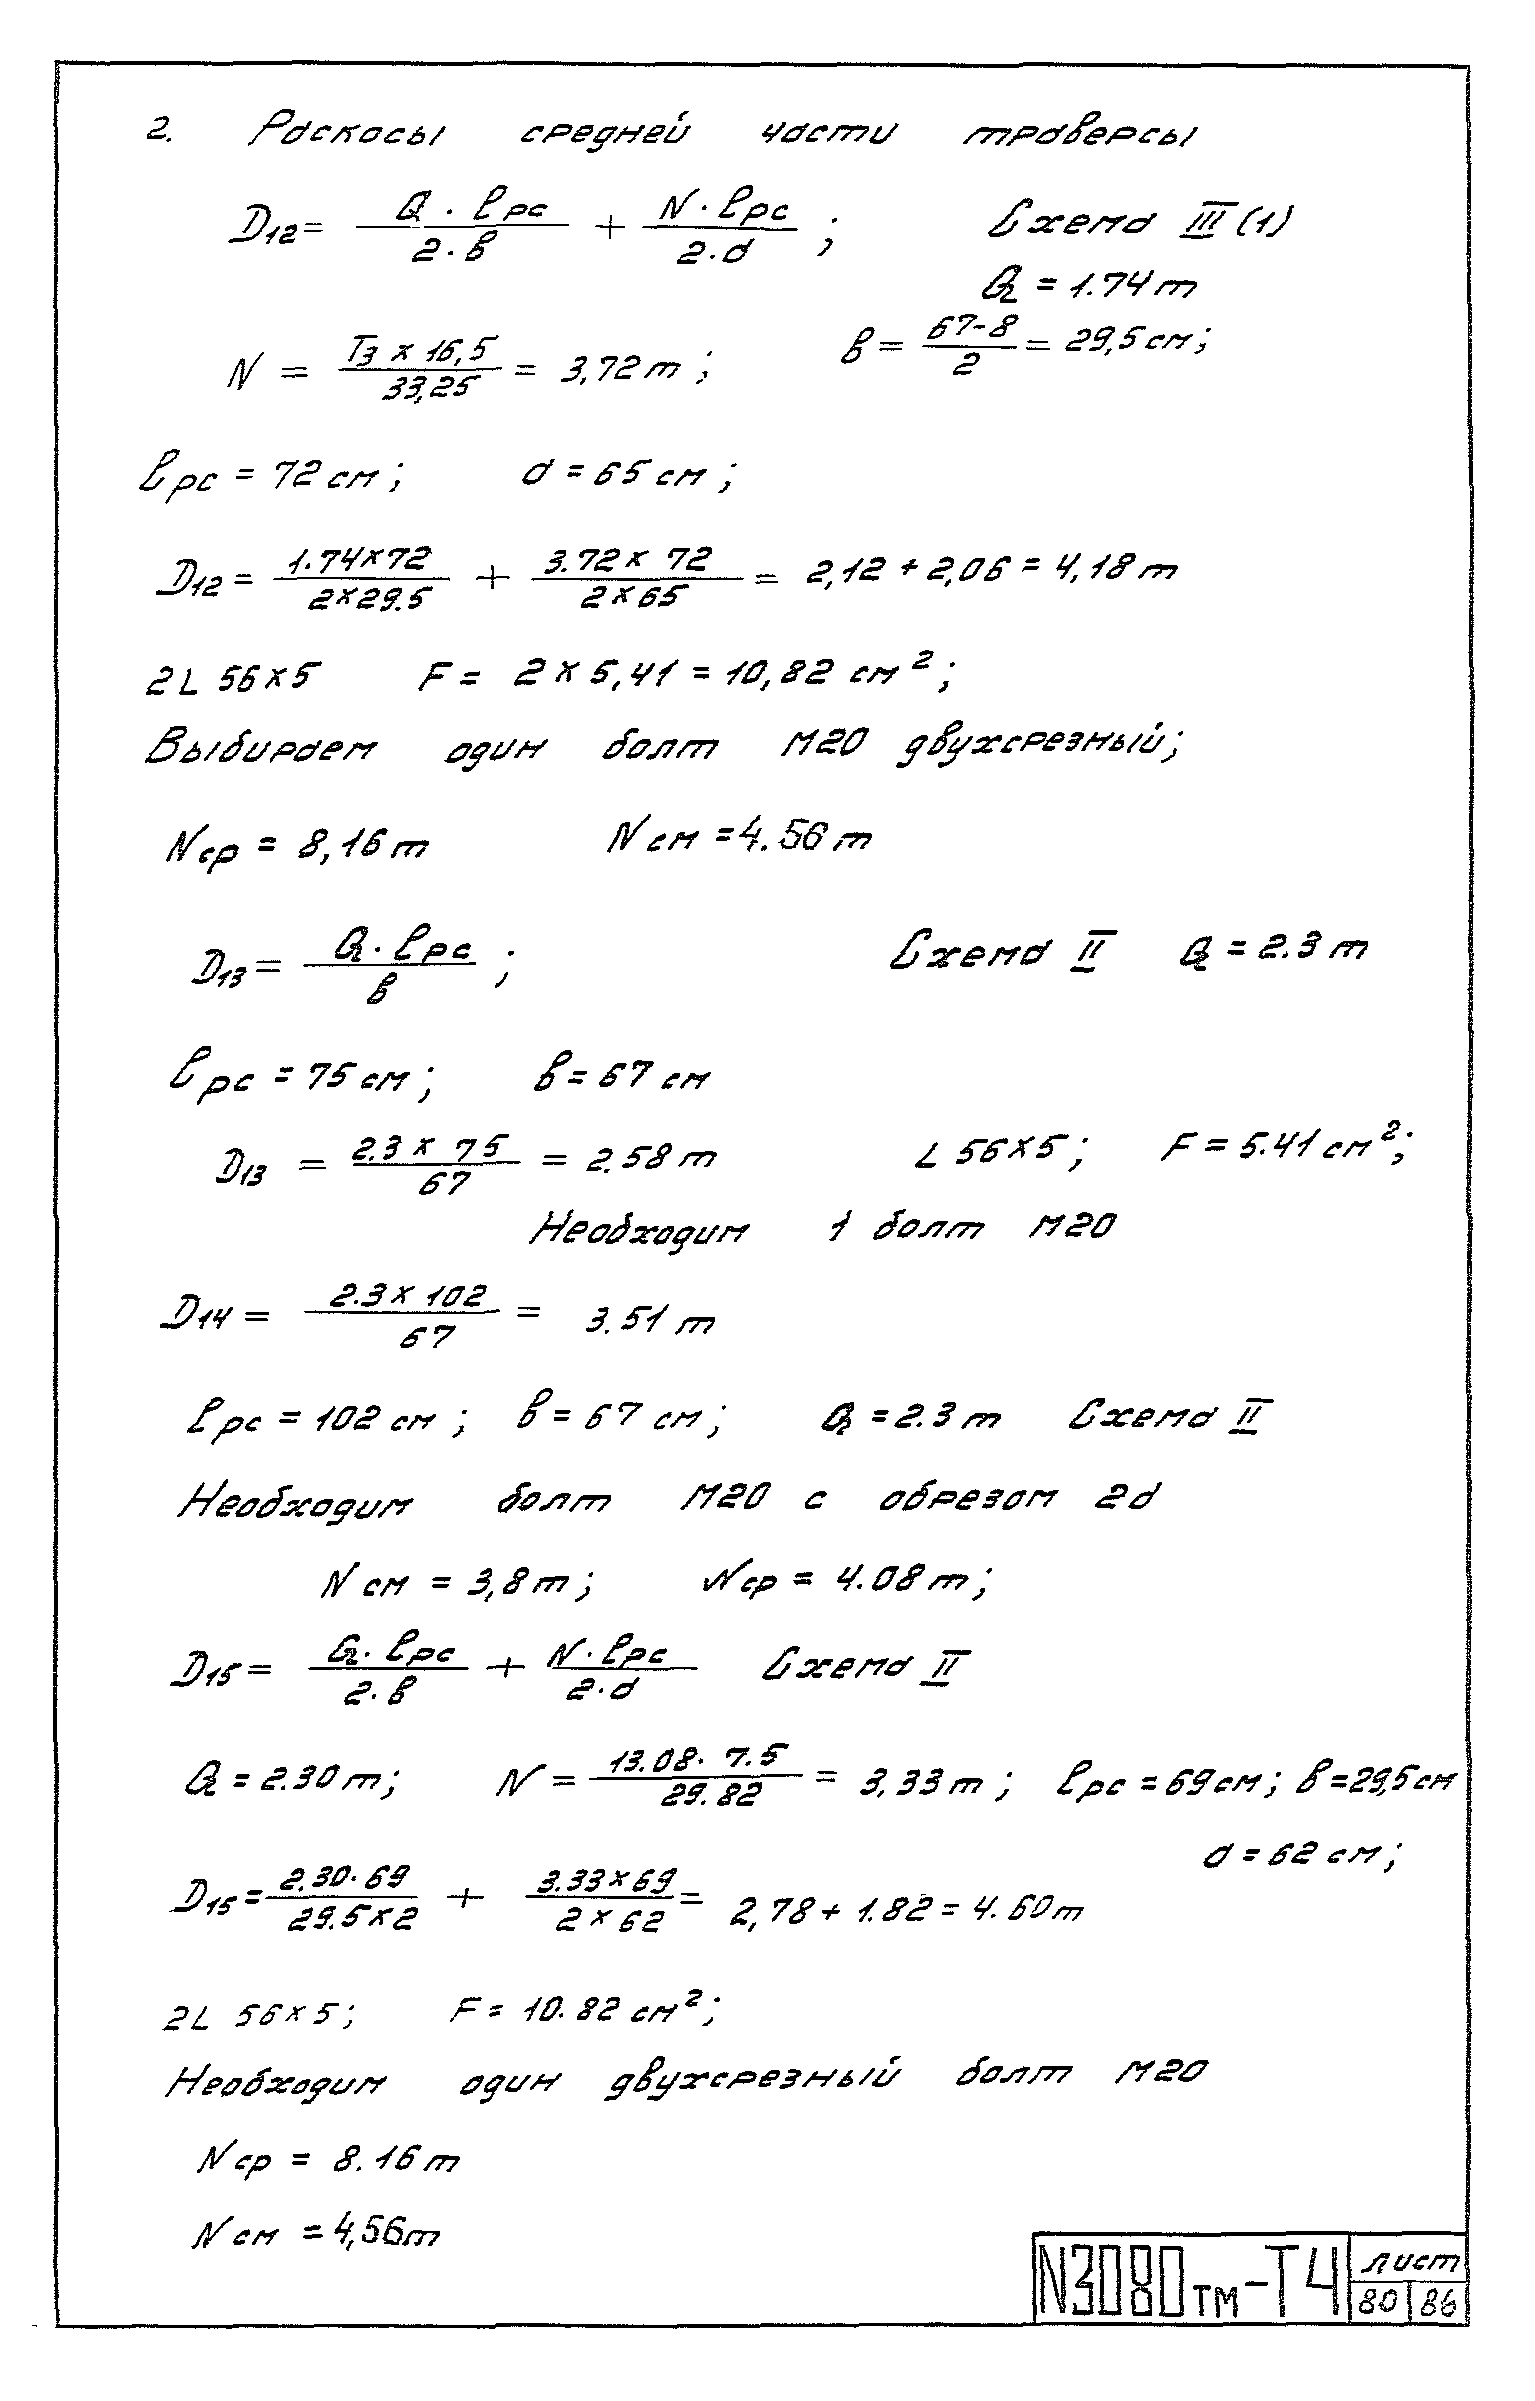 2. Раскосы средней части траверсы
D12 = Q · ℓрс / 2·в + N · ℓрс / 2·а ; Схема III (1)
Q = 1.74 т
N = T3 × 16,5 / 33,25 = 3,72 т ; в = 67-8 / 2 = 29,5 см;
ℓрс = 72 см ; а = 65 см ;
D12 = 1.74×72 / 2×29.5 + 3.72 × 72 / 2×65 = 2,12 + 2,06 = 4,18 т
2L 56×5 F = 2 × 5,41 = 10,82 см²;
Выбираем один болт М20 двухсрезный;
Nср = 8,16 т Nсм = 4.56 т
D13 = Q · ℓрс / в ; Схема II Q = 2.3 т
ℓрс = 75 см ; в = 67 см
D13 = 2.3 × 75 / 67 = 2.58 т L 56×5 ; F = 5.41 см²;
Необходим 1 болт М20
D14 = 2.3 × 102 / 67 = 3.51 т
ℓрс = 102 см ; в = 67 см ; Q = 2.3 т Схема II
Необходим болт М20 с обрезом 2d
Nсм = 3,8 т ; Nср = 4.08 т ;
D15 = Q · ℓрс / 2·в + N · ℓрс / 2·а Схема II
Q = 2.30 т; N = 13.08 · 7.5 / 29.82 = 3,33 т ; ℓрс = 69 см ; в = 29,5 см
а = 62 см ;
D15 = 2.30·69 / 29.5×2 + 3.33×69 / 2×62 = 2,78 + 1.82 = 4.60 т
2L 56×5 ; F = 10.82 см²;
Необходим один двухсрезный болт М20
Nср = 8.16 т
Nсм = 4,56 т
N3080тм-Т4 лист
80 86